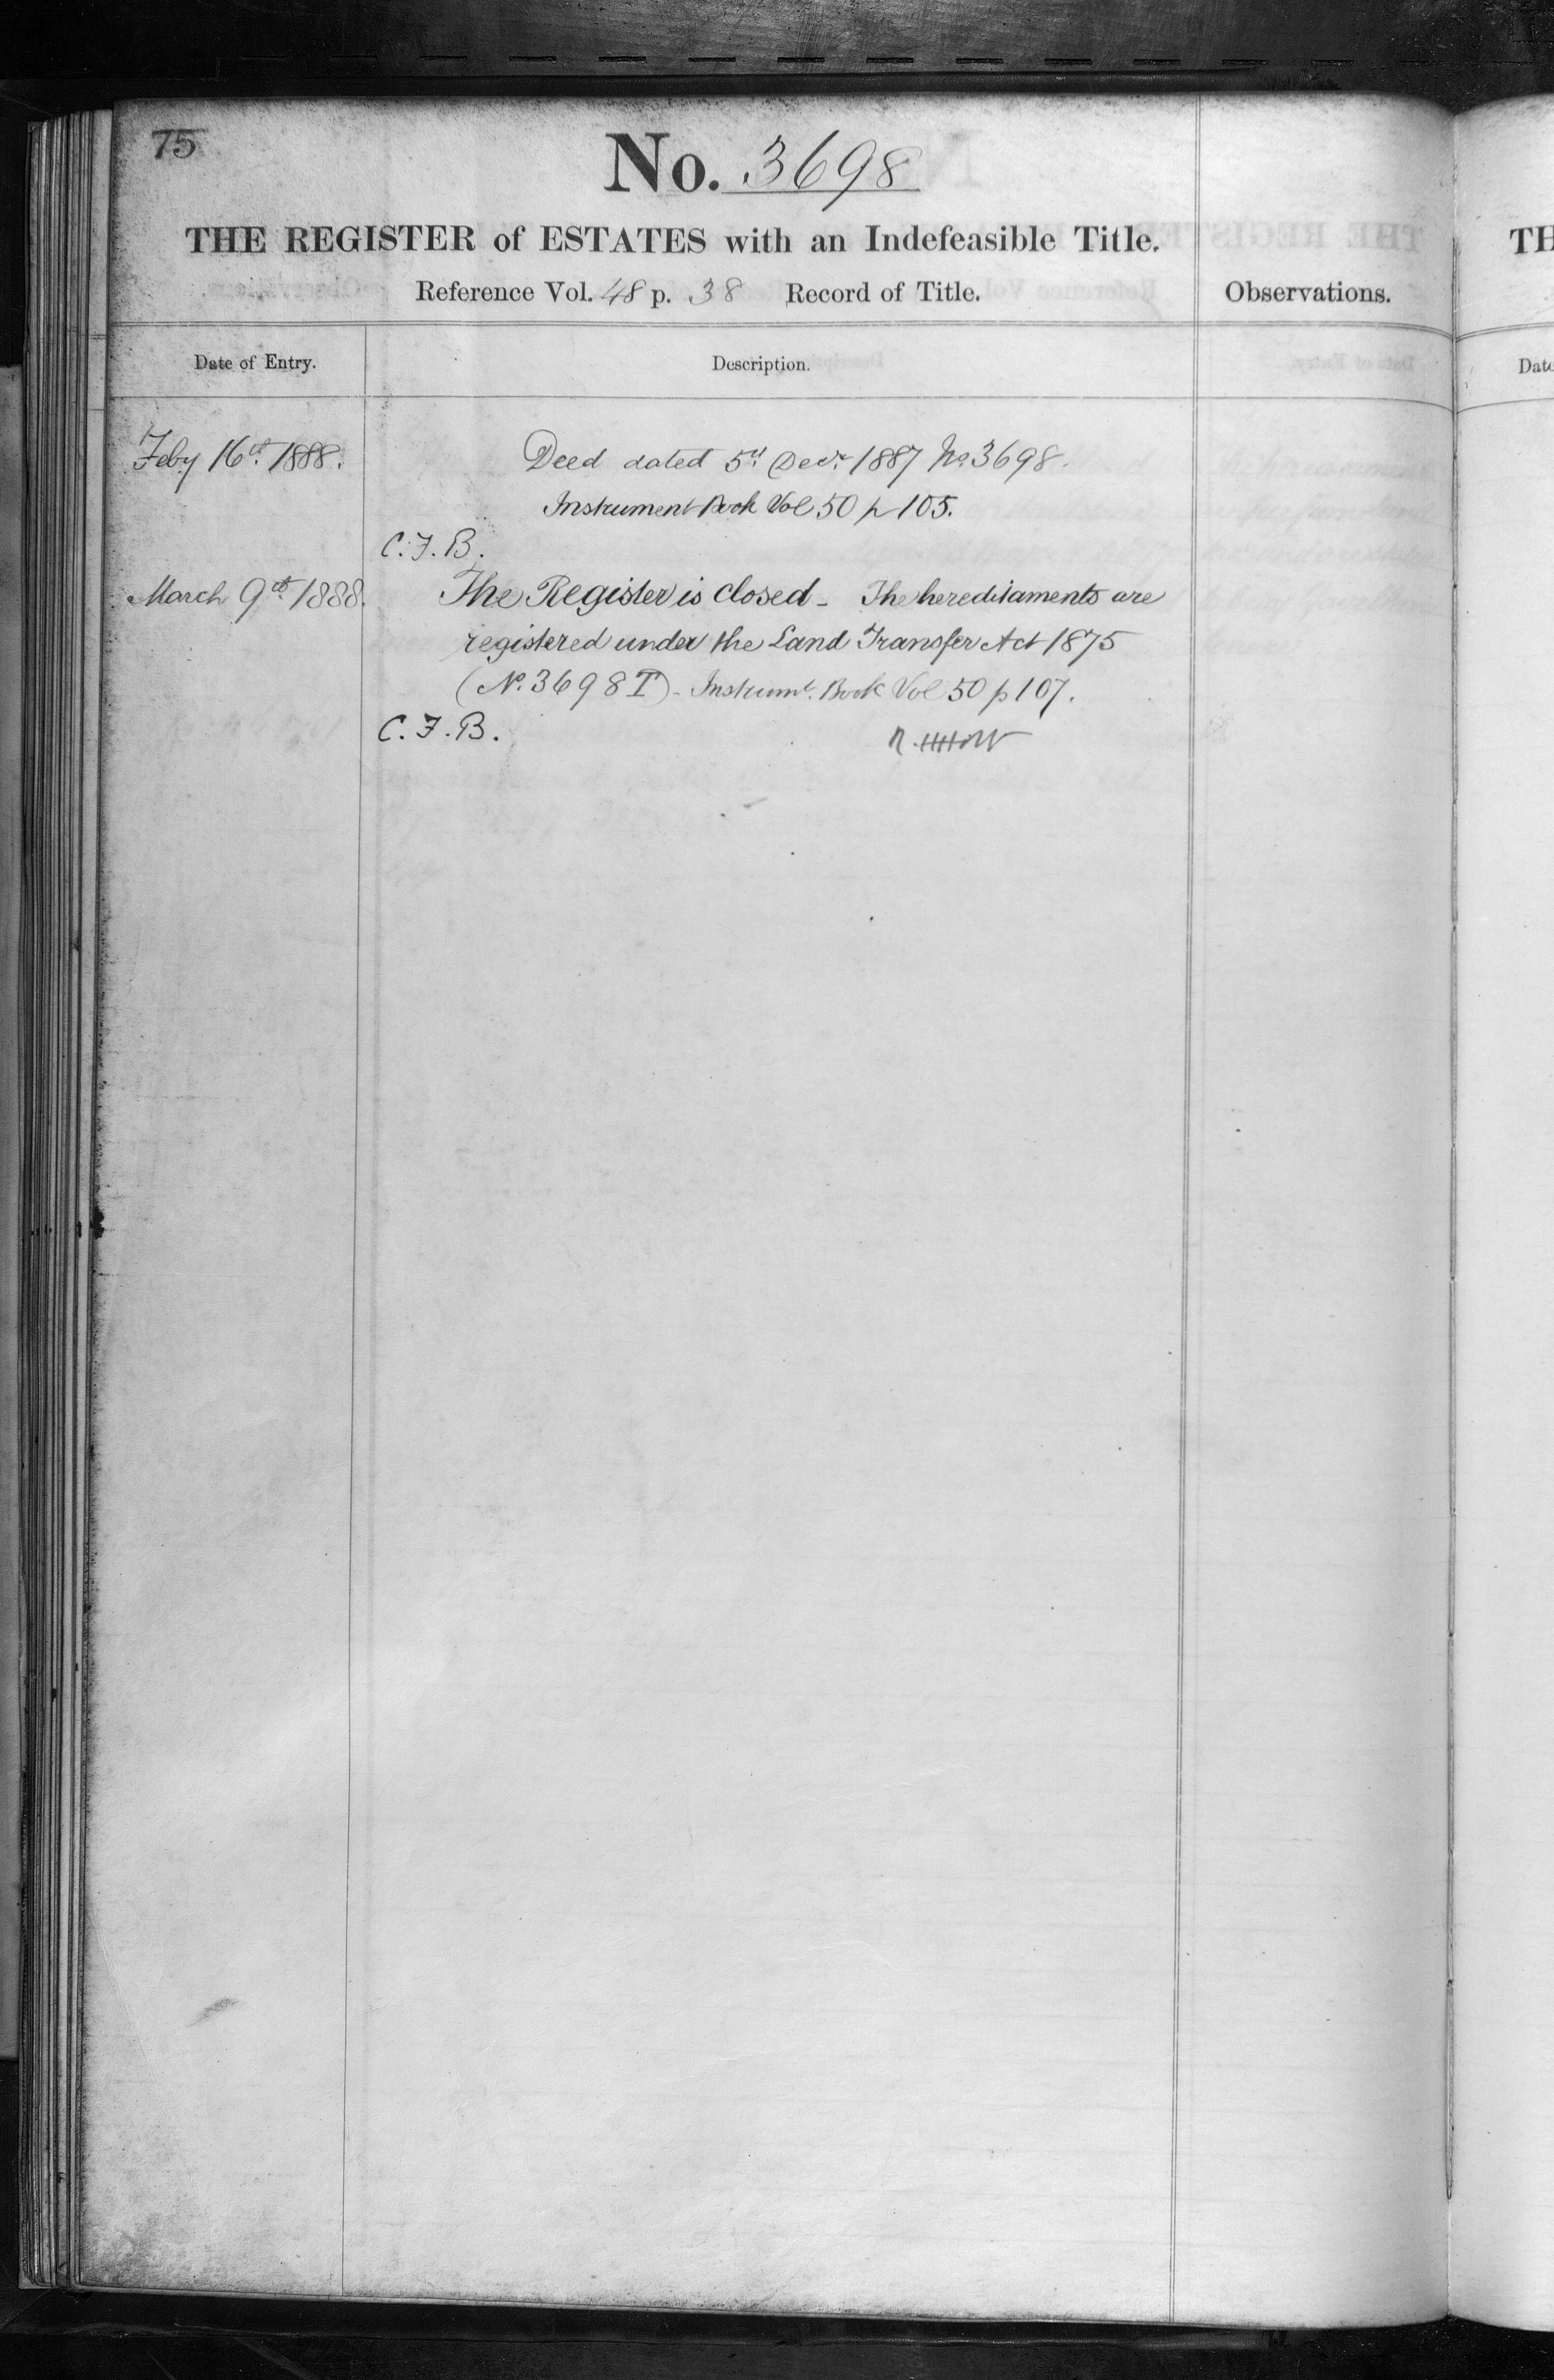 75
No. 3698
THE REGISTER of ESTATES with an Indefeasible Title.
Reference Vol. 48 p. 38 Record of Title.
Observations.
TH
Date of Entry.
Description.
Date
Feby 16th 1888.
Deed dated 5th Decr 1887 No. 3698.
Instrument Book Vol 50 p 105.
C.F.B.
March 9th 1888.
The Register is closed - The hereditaments are
registered under the Land Transfer Act 1875
(No. 3698 T) - Instrumt. Book Vol 50 p 107.
C.F.B.